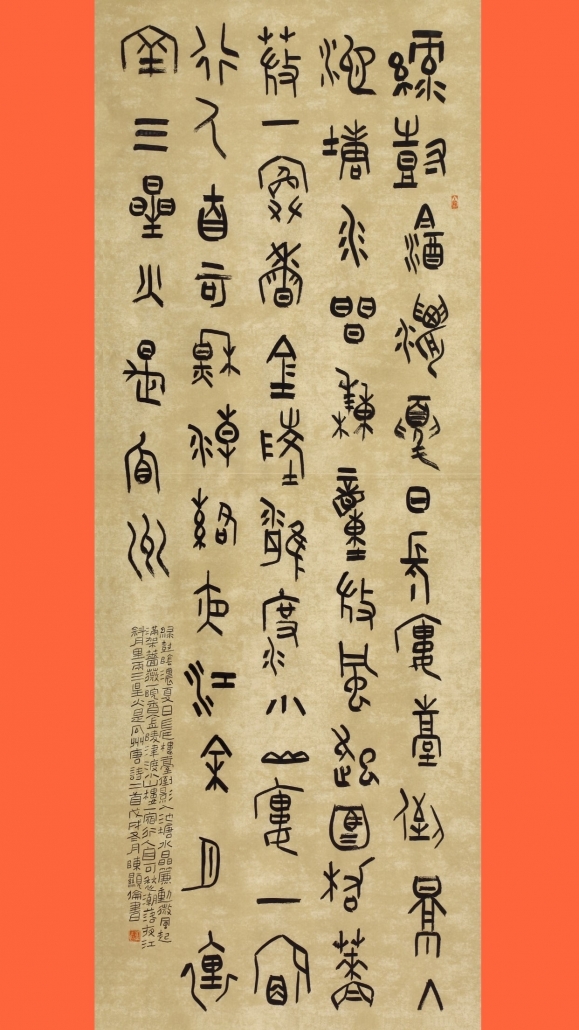 綠樹陰濃夏日長樓臺倒影入
池塘水晶簾動微風起滿架薔
薇一院香金陵津渡小山樓一宿
行人自可愁潮落夜江斜月裏
兩三星火是瓜州
綠樹陰濃夏日長樓臺倒影入池塘水晶簾動微風起
滿架薔薇一院香金陵津渡小山樓一宿行人自可愁潮落夜江
斜月里兩三星火是瓜州唐詩二首戊戌冬月陳顯倫書